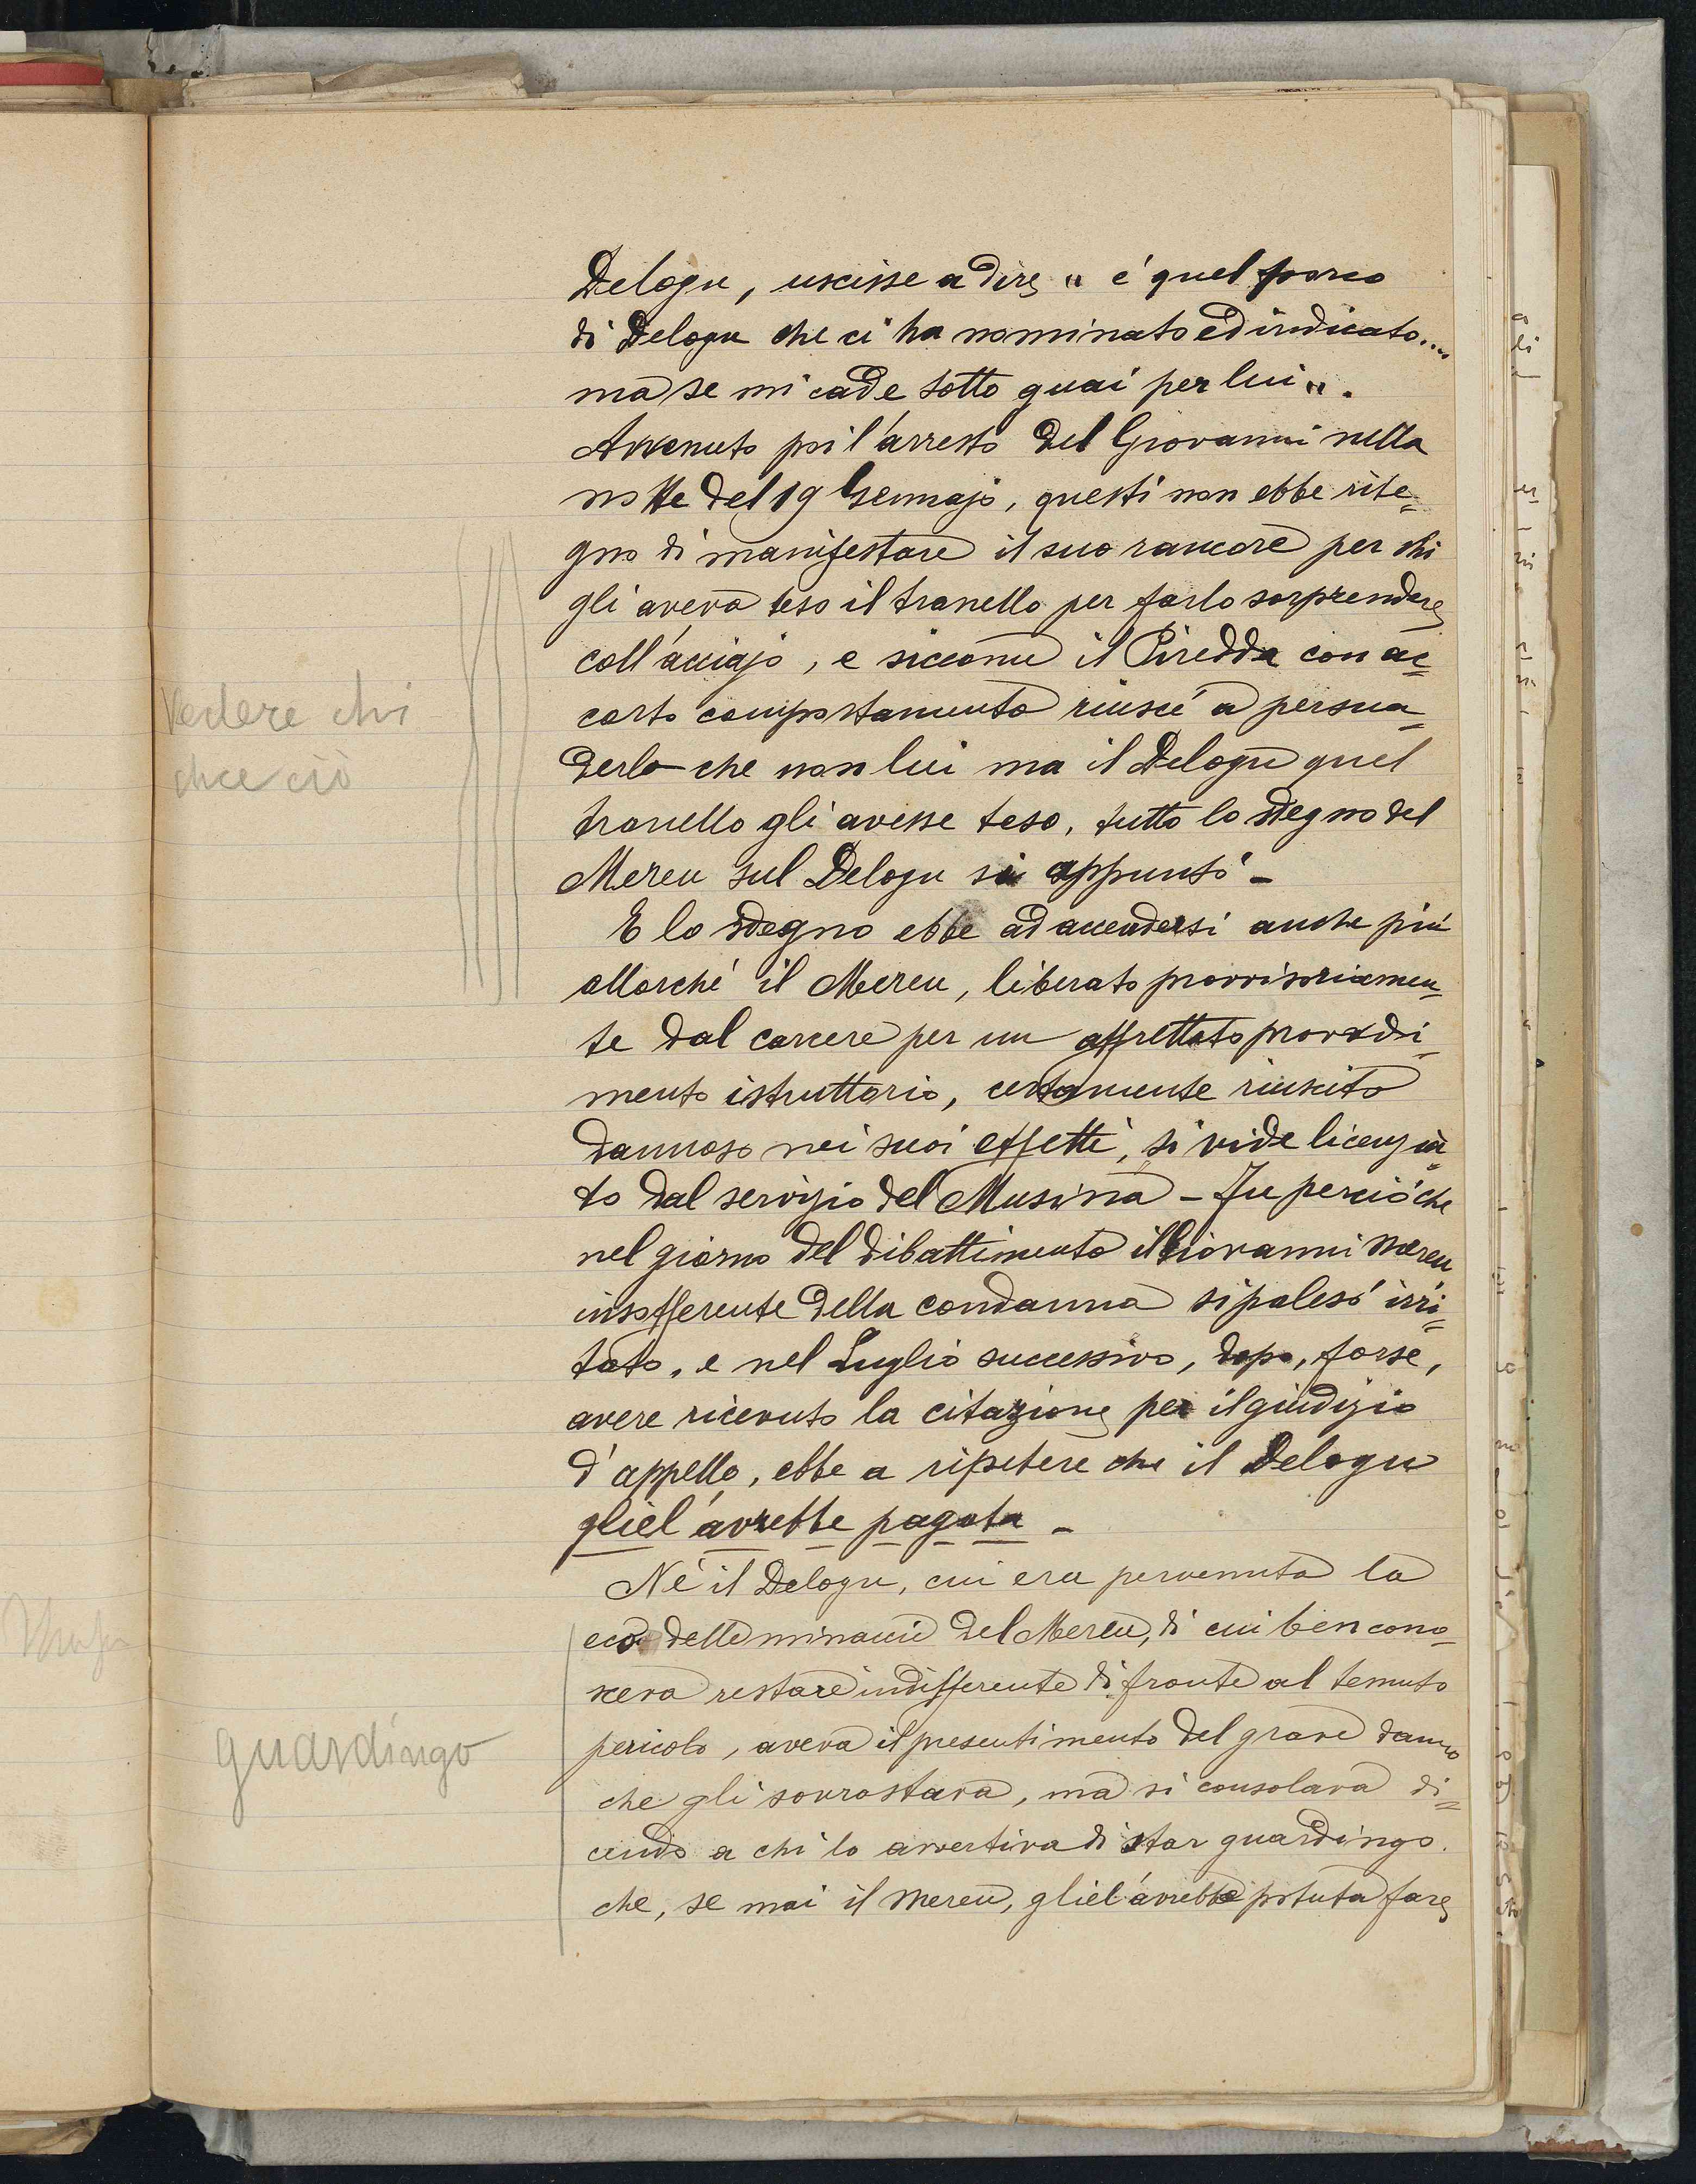 Delogu, uscisse a dire „ é quel porco
di Delogu che ci ha nominato ed indicato....
ma se mi cade sotto guai per lui „.
Avvenuto poi l'arresto del Giovanni nella
notte del 19 Gennajo, questi non ebbe rite=
gno di manifestare il suo rancore per chi
gli aveva teso il tranello per farlo sorprendere
coll'acciajo, e siccome il Piredda con ac=
corto comportamento riuscí a persua=
derlo che non lui ma il Delogu quel
tranello gli avesse teso, tutto lo sdegno del
Mereu sul Delogu si appuntó -
E lo sdegno ebbe ad accendersi anche piú
allorché il Mereu, liberato provvisoriamen=
te dal carcere per un affrettato provvedi=
mento istruttorio, certamente riuscito
dannoso nei suoi effetti, si vide licenzia=
to dal servizio del Musina - Fu perció che
nel giorno del dibattimento il Giovanni Mereu
insofferente della condanna si palesó irri=
tato, e nel Luglio successivo, dopo, forse,
avere ricevuto la citazione per il giudizio
d'appello, ebbe a ripetere che il Delogu
gliel'avrebbe pagata -
Né il Delogu, cui era pervenuta la
eco delle minaccie del Mereu, di cui ben cono=
sceva restare indifferente di fronte al temuto
pericolo, aveva il presentimento del grave danno
che gli sovrastava, ma si consolava di=
cendo a chi lo avvertiva di star guardingo.
che, se mai il Mereu, gliel'avrebbe potuta fare
Vedere chi
dice ciò
guardingo